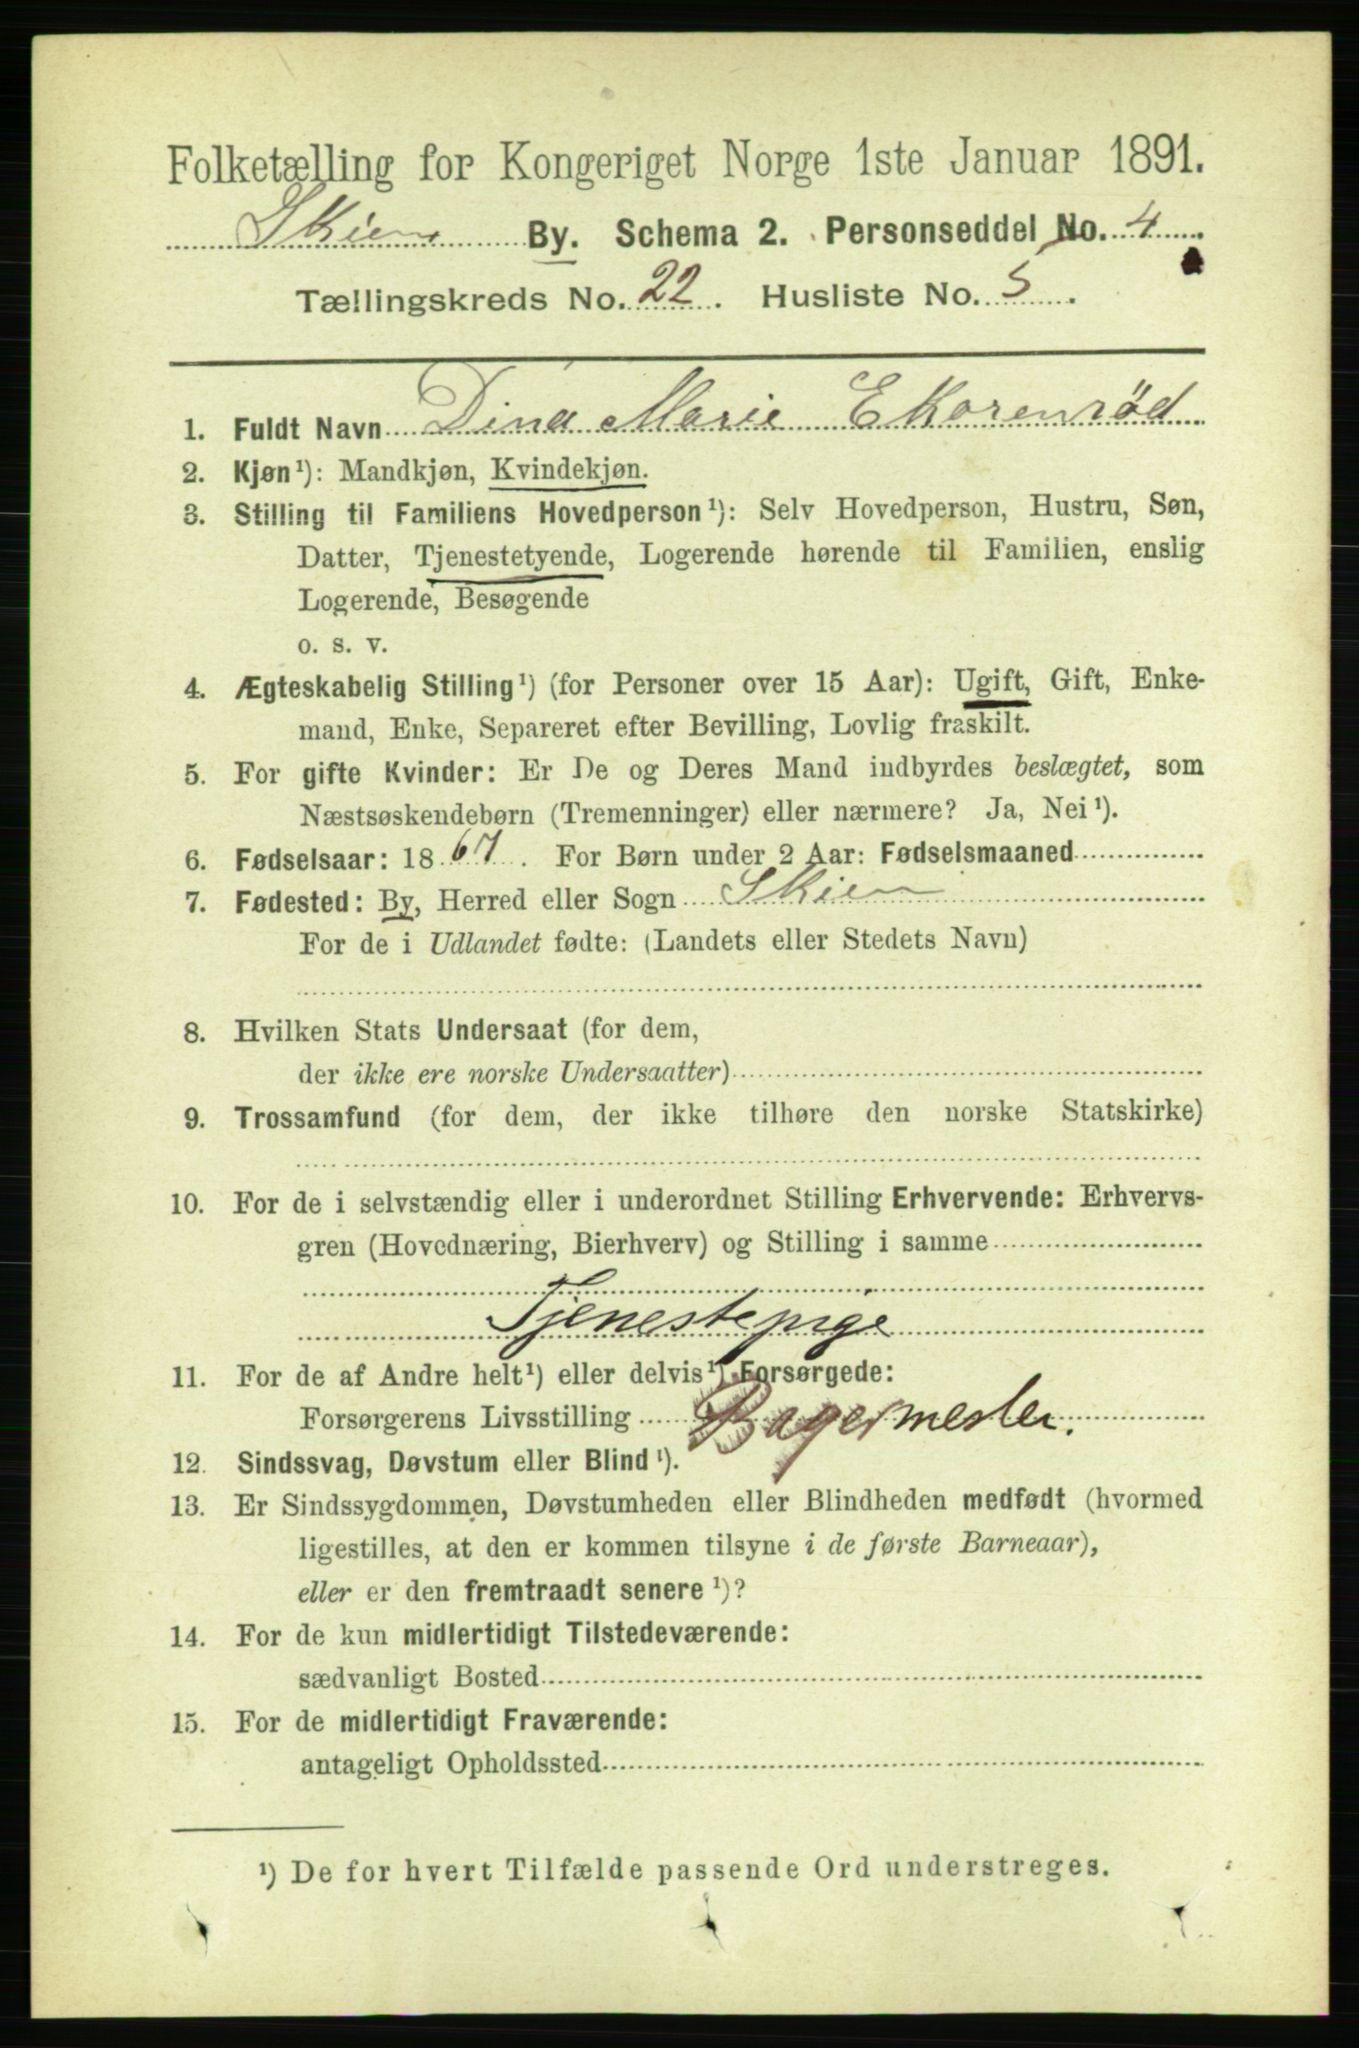 Folketælling for Kongeriget Norge 1ste Januar 1891.
Skien By. Schema 2. Personseddel No. 4.
Tællingskreds No. 22. Husliste No. 5.
1. Fuldt Navn Dina Marie Ekorenrød
2. Kjøn¹): Mandkjøn, Kvindekjøn.
3. Stilling til Familiens Hovedperson¹): Selv Hovedperson, Hustru, Søn,
Datter, Tjenestetyende, Logerende hørende til Familien, enslig
Logerende, Besøgende
o. s. v.
4. Ægteskabelig Stilling¹) (for Personer over 15 Aar): Ugift, Gift, Enke-
mand, Enke, Separeret efter Bevilling, Lovlig fraskilt.
5. For gifte Kvinder: Er De og Deres Mand indbyrdes beslægtet, som
Næstsøskendebørn (Tremenninger) eller nærmere? Ja, Nei¹).
6. Fødselsaar: 1867. For Børn under 2 Aar: Fødselsmaaned
7. Fødested: By, Herred eller Sogn Skien
For de i Udlandet fødte: (Landets eller Stedets Navn)
8. Hvilken Stats Undersaat (for dem,
der ikke ere norske Undersaatter)
9. Trossamfund (for dem, der ikke tilhøre den norske Statskirke)
10. For de i selvstændig eller i underordnet Stilling Erhvervende: Erhvervs-
gren (Hovednæring, Bierhverv) og Stilling i samme
Tjenestepige
11. For de af Andre helt¹) eller delvis¹) Forsørgede:
Forsørgerens Livsstilling Bagermester.
12. Sindssvag, Døvstum eller Blind¹).
13. Er Sindssygdommen, Døvstumheden eller Blindheden medfødt (hvormed
ligestilles, at den er kommen tilsyne i de første Barneaar),
eller er den fremtraadt senere¹)?
14. For de kun midlertidigt Tilstedeværende:
sædvanligt Bosted
15. For de midlertidigt Fraværende:
antageligt Opholdssted
¹) De for hvert Tilfælde passende Ord understreges.